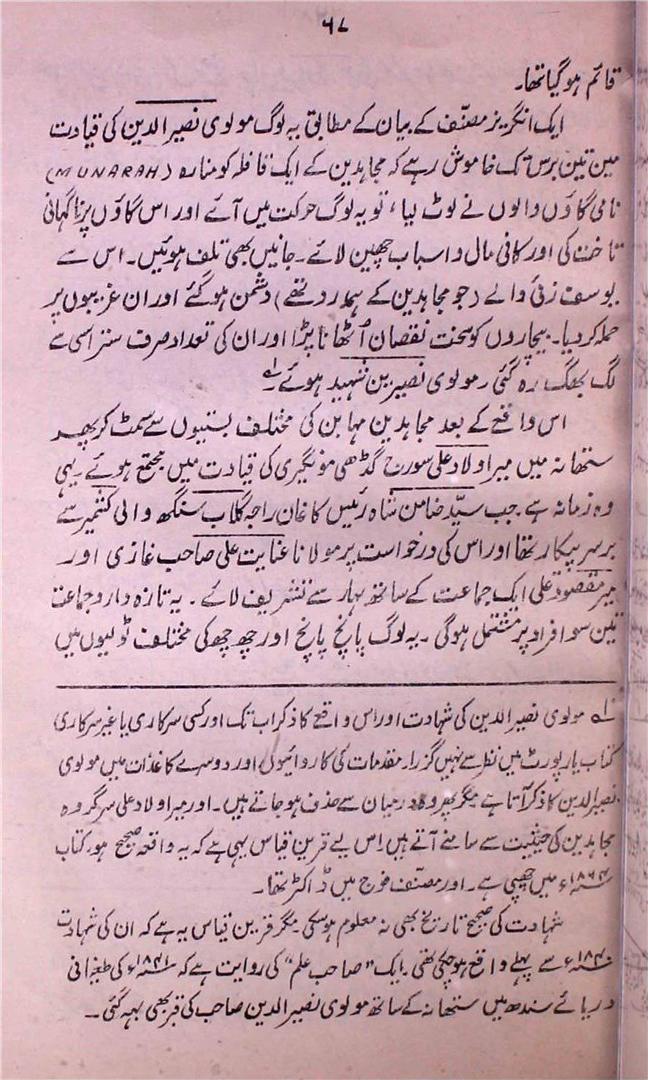 ۶۷
قائم ہوگیا تھا۔
ایک انگریز مصنّف کے بیان کے مطابق یہ لوگ مولوی نصیر الدین کی قیادت
میں تین برس تک خاموش رہے کہ مجاہدین کے ایک قافلہ کو منارہ (MUNARAH)
نامی گاؤں والوں نے لوٹ لیا، تو یہ لوگ حرکت میں آئے اور اس گاؤں پر ناگہانی
تاخت کی اور کافی مال و اسباب چھین لائے۔ جانیں بھی تلف ہوئیں۔ اس سے
یوسف زئی والے (جو مجاہدین کے ہمدرد تھے) دشمن ہو گئے اور ان غریبوں پر
حملہ کر دیا۔ بیچاروں کو سخت نقصان اُٹھانا پڑا اور ان کی تعداد صرف ستر اسی سے
لگ بھگ رہ گئی۔ مولوی نصیر بن شہید ہوئے۔ لہ
اس واقعے کے بعد مجاہدین مہابن کی مختلف بستیوں سے سمٹ کر پھر
ستھانہ میں میر اولاد علی سورج گڈھی مونگیری کی قیادت میں مجتمع ہوئے۔ یہی
وہ زمانہ ہے جب سیّد ضامن شاہ رئیس کاغان راجہ گلاب سنگھ والی کشمیر سے
برسرِ پیکار تھا اور اس کی درخواست پر مولانا عنایت علی صاحب غازی اور
میر مقصود علی ایک جماعت کے ساتھ بہار سے تشریف لائے۔ یہ تازہ دار و جماعت
تین سو افراد پر مشتمل ہوگی۔ یہ لوگ پانچ پانچ اور چھ چھ کی مختلف ٹولیوں میں
لہ مولوی نصیر الدین کی شہادت اور اس واقعے کا ذکر اب تک اور کسی سرکاری یا غیر سرکاری
کتاب یا رپورٹ میں نظر سے نہیں گزرا۔ مقدمات کی کاروائیوں اور دوسرے کاغذات میں مولوی
نصیر الدین کا ذکر آتا ہے مگر پھر وہ درمیان سے حذف ہو جاتے ہیں۔ اور میر اولاد علی سرگروہ
مجاہدین کی حیثیت سے سامنے آتے ہیں اس لیے قرین قیاس یہی ہے کہ یہ واقعہ صحیح ہو۔ کتاب
میں چھپی ہے۔ اور مصنّف فوج میں ڈاکٹر تھا۔
شہادت کی صحیح تاریخ بھی نہ معلوم ہو سکی مگر قرین قیاس یہ ہے کہ ان کی شہادت
۱۸۴۰ء سے پہلے واقع ہو چکی تھی۔ ایک "صاحب علم" کی روایت ہے کہ ۱۸۴۱ء کی طغیانی
دریائے سندھ میں ستھانہ کے ساتھ مولوی نصیر الدین صاحب کی قبر بھی بہہ گئی۔